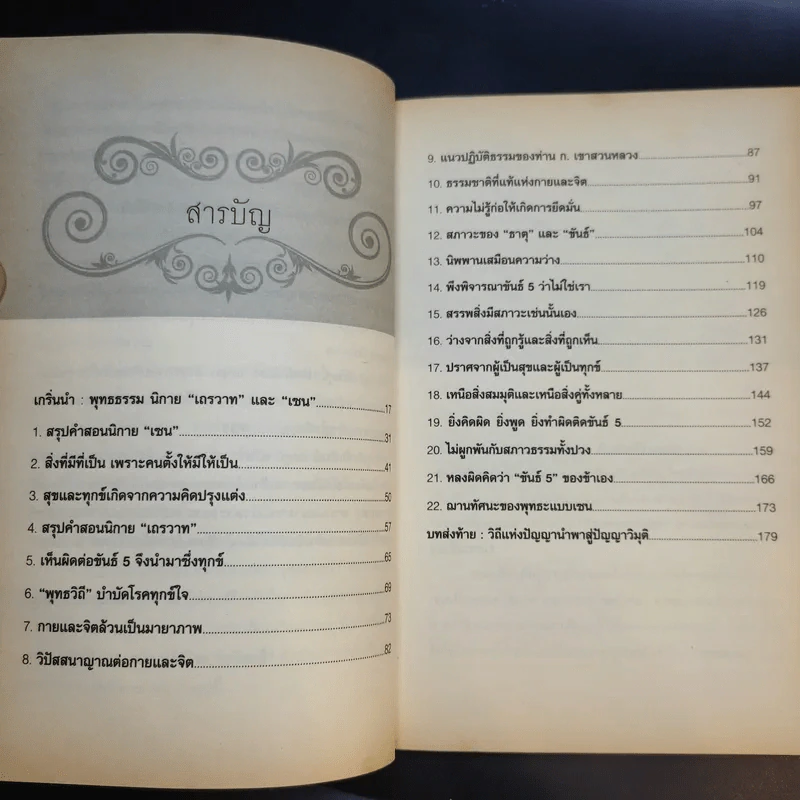 สารบัญ
เกริ่นนำ : พุทธธรรม นิกาย “เถรวาท” และ “เซน”.....17
1. สรุปคำสอนนิกาย “เซน”.....31
2. สิ่งที่มีที่เป็น เพราะคนตั้งให้มีให้เป็น.....41
3. สุขและทุกข์เกิดจากความคิดปรุงแต่ง.....50
4. สรุปคำสอนนิกาย “เถรวาท”.....57
5. เห็นผิดต่อขันธ์ 5 จึงนำมาซึ่งทุกข์.....65
6. “พุทธวิถี” บำบัดโรคทุกข์ใจ.....69
7. กายและจิตล้วนเป็นมายาภาพ.....73
8. วิปัสสนาญาณต่อกายและจิต.....82
9. แนวปฏิบัติธรรมของท่าน ก. เขาสวนหลวง.....87
10. ธรรมชาติที่แท้แห่งกายและจิต.....91
11. ความไม่รู้ก่อให้เกิดการยึดมั่น.....97
12. สภาวะของ “ธาตุ” และ “ขันธ์”.....104
13. นิพพานเสมือนความว่าง.....110
14. พึงพิจารณาขันธ์ 5 ว่าไม่ใช่เรา.....119
15. สรรพสิ่งมีสภาวะเช่นนั้นเอง.....126
16. ว่างจากสิ่งที่ถูกรู้และสิ่งที่ถูกเห็น.....131
17. ปราศจากผู้เป็นสุขและผู้เป็นทุกข์.....137
18. เหนือสิ่งสมมุติและเหนือสิ่งคู่ทั้งหลาย.....144
19. ยิ่งคิดผิด ยิ่งพูด ยิ่งทำผิดติดขันธ์ 5.....152
20. ไม่ผูกพันกับสภาวธรรมทั้งปวง.....159
21. หลงผิดคิดว่า “ขันธ์ 5” ของข้าเอง.....166
22. ฌานทัศนะของพุทธะแบบเซน.....173
บทส่งท้าย : วิถีแห่งปัญญานำพาสู่ปัญญาวิมุติ.....179